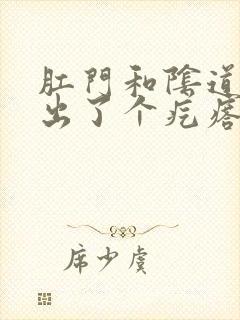 肛門和陰道
出了个疙瘩
席少虞